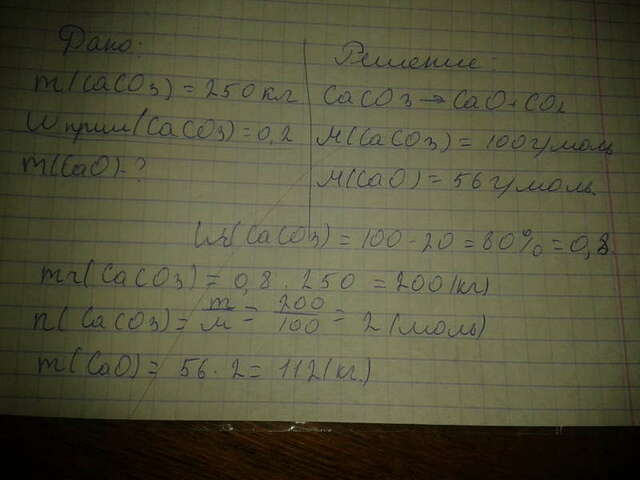 Дано:
m(CaCO3) = 250 кг
Wприм(CaCO3) = 0,2
m(CaO) - ?
Решение:
CaCO3 → CaO + CO2
M(CaCO3) = 100 г/моль
M(CaO) = 56 г/моль.
Wч(CaCO3) = 100 - 20 = 80% = 0,8
mч(CaCO3) = 0,8 · 250 = 200(кг)
n(CaCO3) = m/M = 200/100 = 2(моль)
m(CaO) = 56 · 2 = 112(кг.)